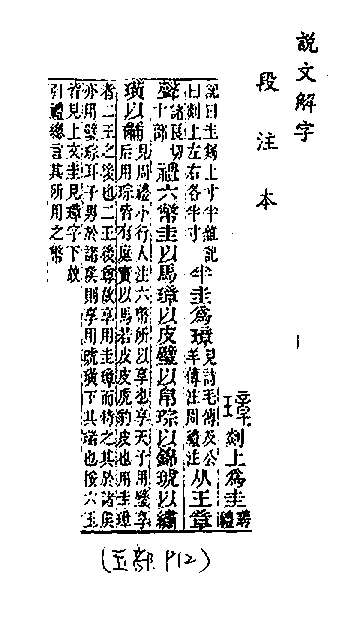 說文解字
段注本
璋剡上爲圭聘禮
記曰圭剡上寸半雜記
曰剡上左右各半寸半圭爲璋見詩毛傳及公羊傳注周禮注从王章
聲諸良切十部禮六幣圭以馬璋以皮璧以帛琮以錦琥以繡
璜以黼見周禮小行人注六幣所以享也享天子用璧享
后用琮皆有庭實以馬若皮皮虎豹皮也用圭璋
者二王之後也二王後尊故享用圭璋而特之其於諸侯
亦用璧琮耳子男於諸侯則享用琥璜下其瑞也按六玉
皆見上文圭見璋字下故
引禮總言其所用之幣
(玉部 P12)